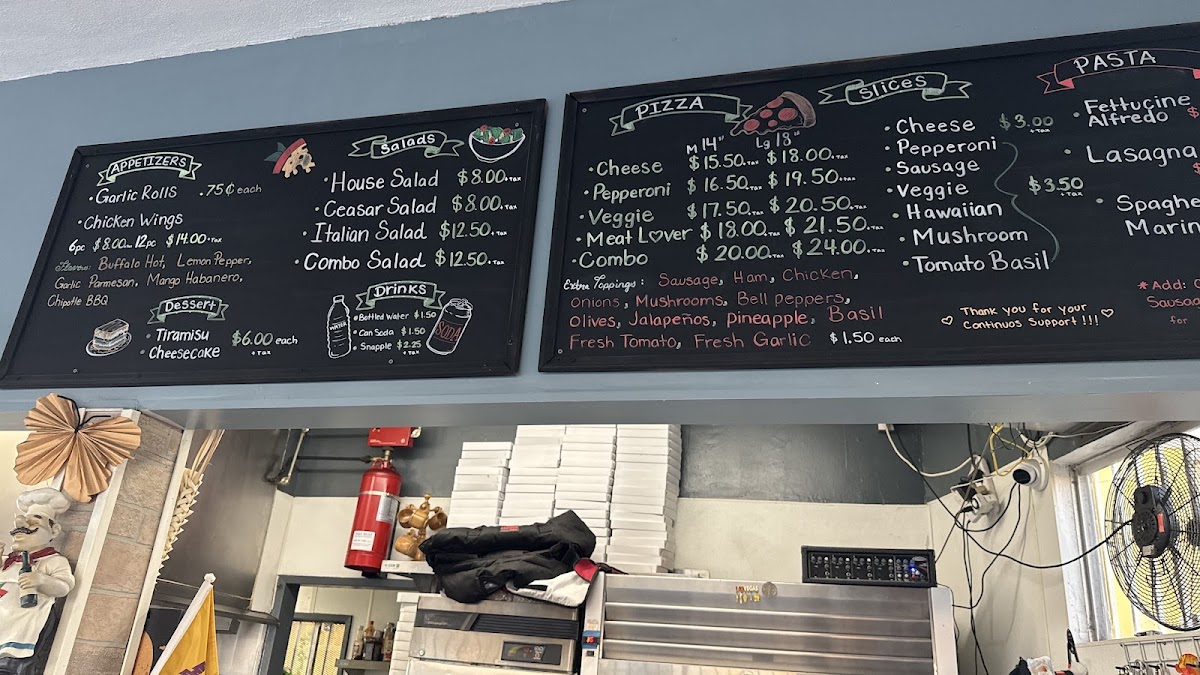 APPETIZERS
• Garlic Rolls .75¢ each
• Chicken Wings
6pc $8.00 +Tax 12pc $14.00 +Tax
Flavors: Buffalo Hot, Lemon Pepper,
Garlic Parmesan, Mango Habanero,
Chipotle BBQ
Dessert
• Tiramisu
• Cheesecake
$6.00 each
+ Tax
Salads
• House Salad $8.00 +Tax
• Ceasar Salad $8.00 +Tax
• Italian Salad $12.50 +Tax
• Combo Salad $12.50 +Tax
Drinks
• Bottled Water $1.50
• Can Soda $1.50
• Snapple $2.25
+ Tax
WATER
SODA
PIZZA
M 14" Lg 18"
• Cheese $15.50 +Tax $18.00 +Tax
• Pepperoni $16.50 +Tax $19.50 +Tax
• Veggie $17.50 +Tax $20.50 +Tax
• Meat Lover $18.00 +Tax $21.50 +Tax
• Combo $20.00 +Tax $24.00 +Tax
Extra Toppings: Sausage, Ham, Chicken,
Onions, Mushrooms, Bell peppers,
Olives, Jalapeños, Pineapple, Basil
Fresh Tomato, Fresh Garlic $1.50 each
Slices
• Cheese $3.00
+ Tax
• Pepperoni
• Sausage
• Veggie
• Hawaiian
• Mushroom
• Tomato Basil
$3.50
+ Tax
Thank you for your
Continuos Support !!!
PASTA
• Fettucine
Alfredo $
• Lasagna $
• Spaghe
Marin
* Add:
Sausag
for